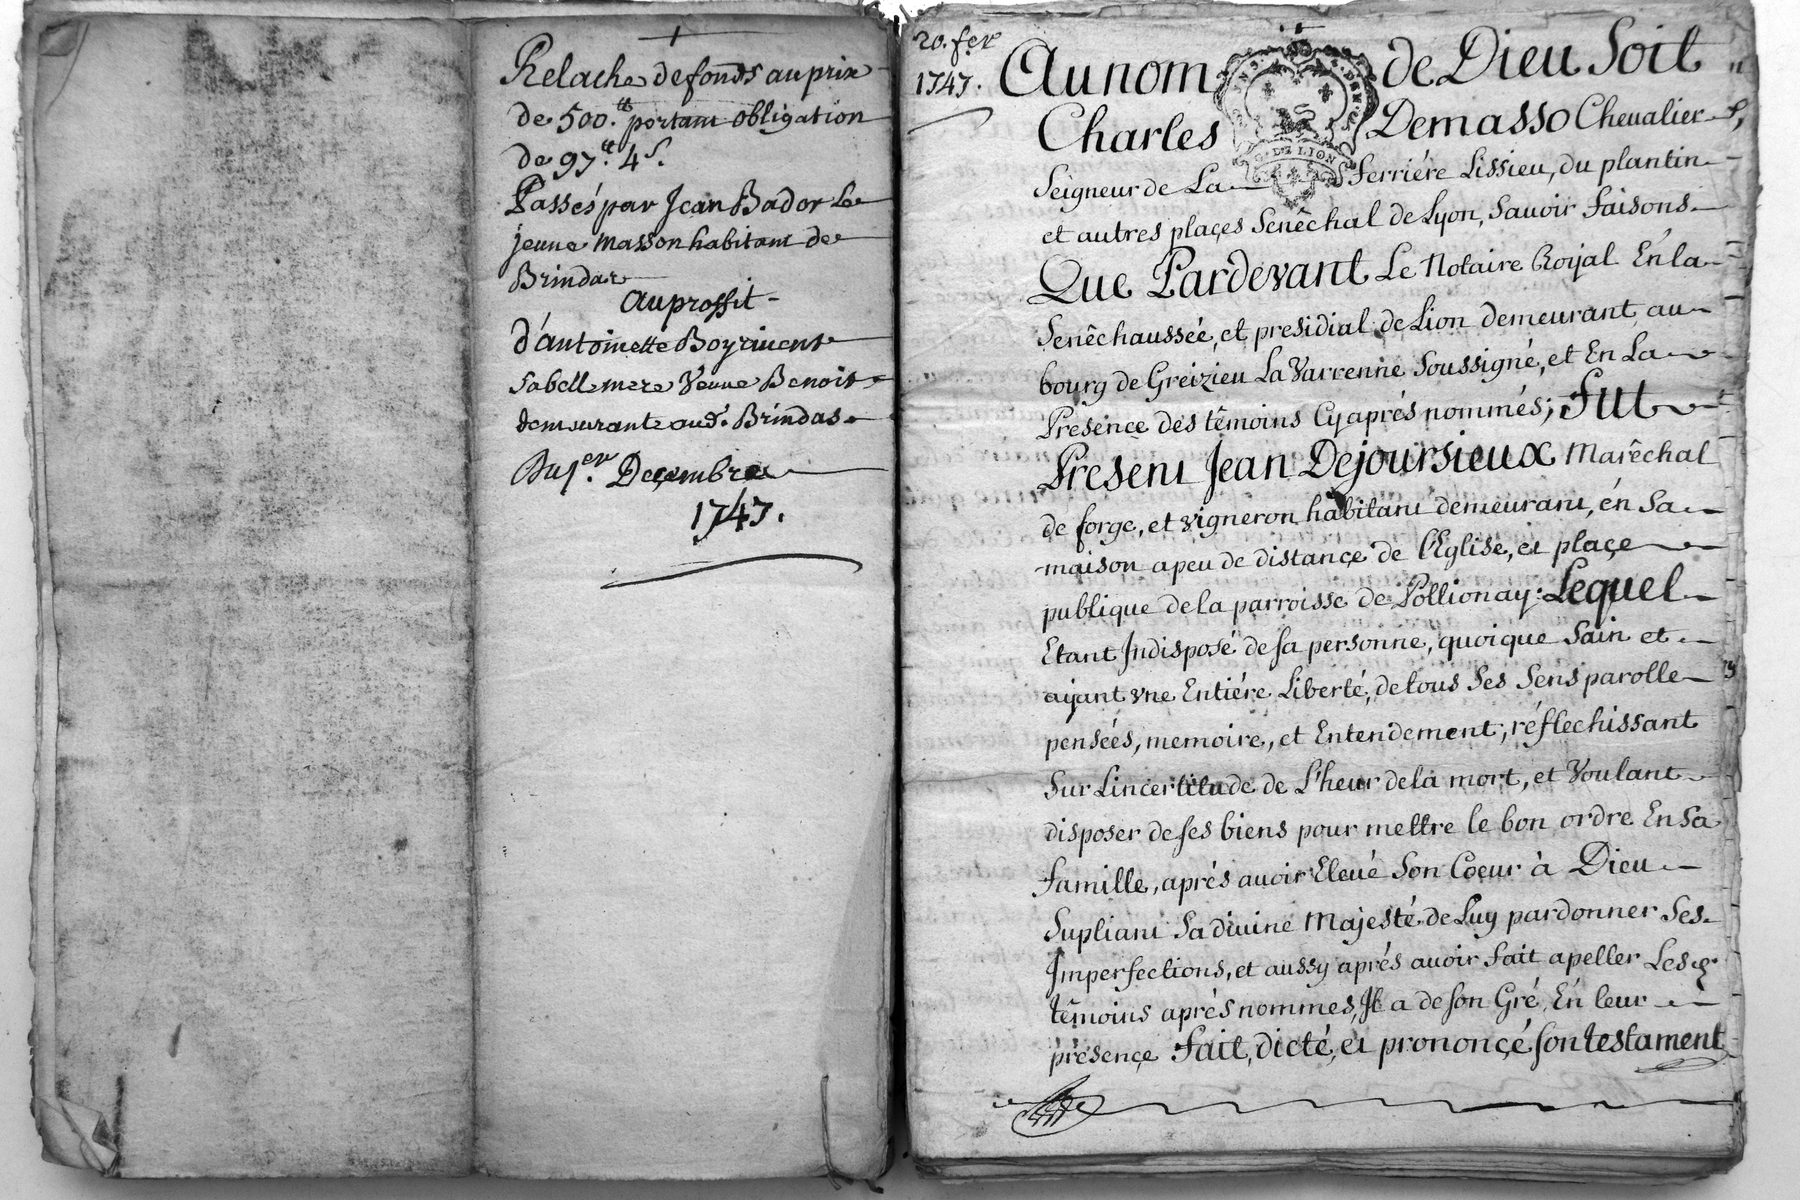 Relache de fonds au prix
de 500.tt portant obligation
de 97.tt 4s.
Passés par Jean Bador Le
jeune masson habitant de
Brindas
au proffit
d'antoinette Boyriuent
sa belle mere veuve Benoit
demeurante aud. Brindas
Du 1er. Decembre
1747.
20. fer
1747.
Au nom de Dieu Soit
Charles Demasso Chevalier
Seigneur de La Ferriére Lissieu, du plantin
et autres plaçes Senêchal de Lyon, Savoir faisons
Que Pardevant Le Notaire Roijal En la
Senêchaussée, et presidial de Lion demeurant au
bourg de Greizieu La Varrenne Soussigné, et En La
Presence des têmoins Cy aprés nommés; Fut
Present Jean Dejoursieux Marêchal
de forge, et vigneron habitant demeurant, én Sa
maison a peu de distançe de l'Eglise, et plaçe
publique de la parroisse de Pollionay: Lequel
Etant Indisposé de sa personne, quoique Sain et
aijant vne Entiére Liberté, de tous Ses Sens parolle
pensées, memoire, et Entendement, réflechissant
Sur Lincertitude de L'heur de la mort, et Voulant
disposer de ses biens pour mettre le bon ordre En Sa
famille, aprés avoir Elevé Son Coeur à Dieu
Supliant Sa divine Majesté de Luy pardonner Ses
Imperfections, et aussy aprés avoir fait apeller Les
têmoins aprés nommes, Il a de son Gré, En leur
présençe Fait, dicté, et prononçé son testament
G. DE LION